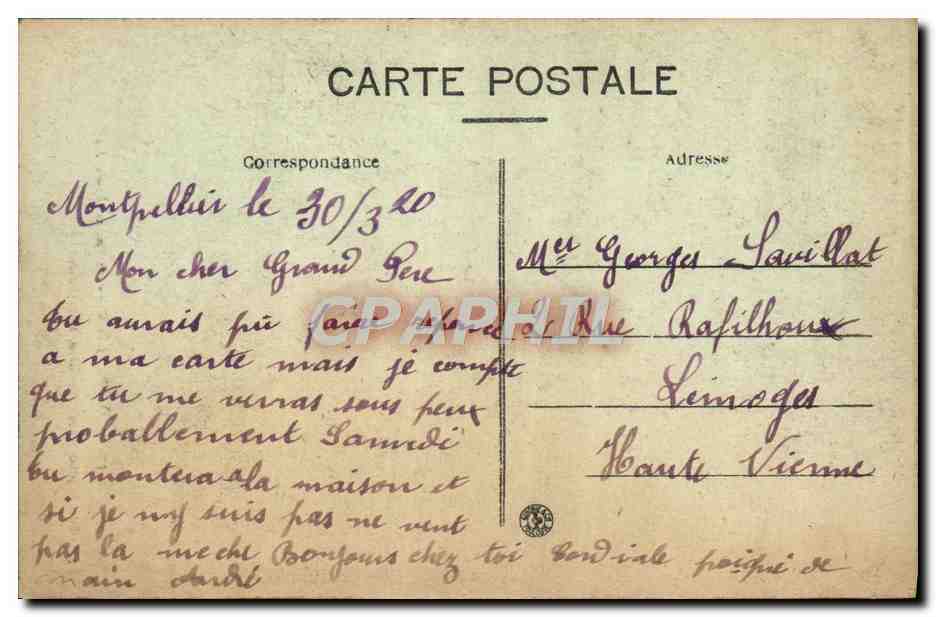 CARTE POSTALE
Correspondance
Montpellier le 30/3 20
Mon cher Grand Pere
tu aurais pû faire reponce
a ma carte mais je compte
que tu me verras sous peux
proballement Samedi
tu montera a la maison et
si je n'y suis pas ne vent
pas la meche Bonjours chez toi Cordiale poigné de
main André
Adresse
Mer Georges Savillat
2 Rue Rafilhoux
Limoges
Haute Vienne
CPAPHIL